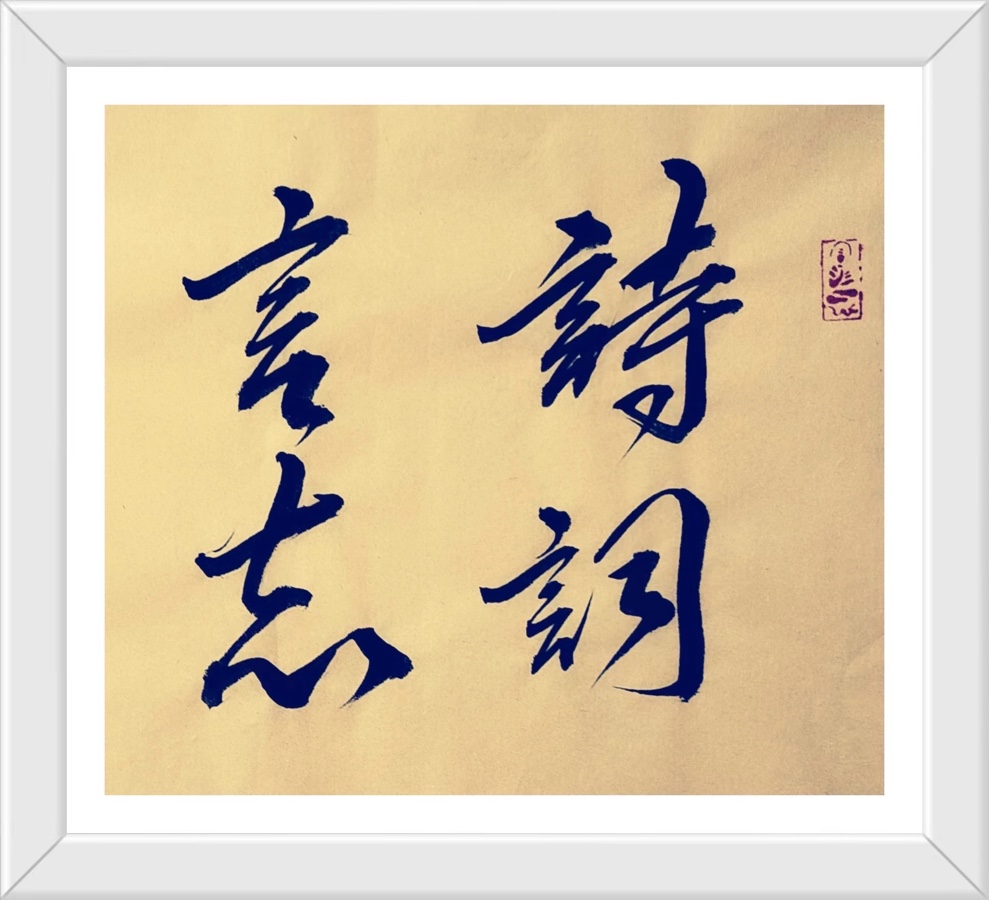 詩詞
言志